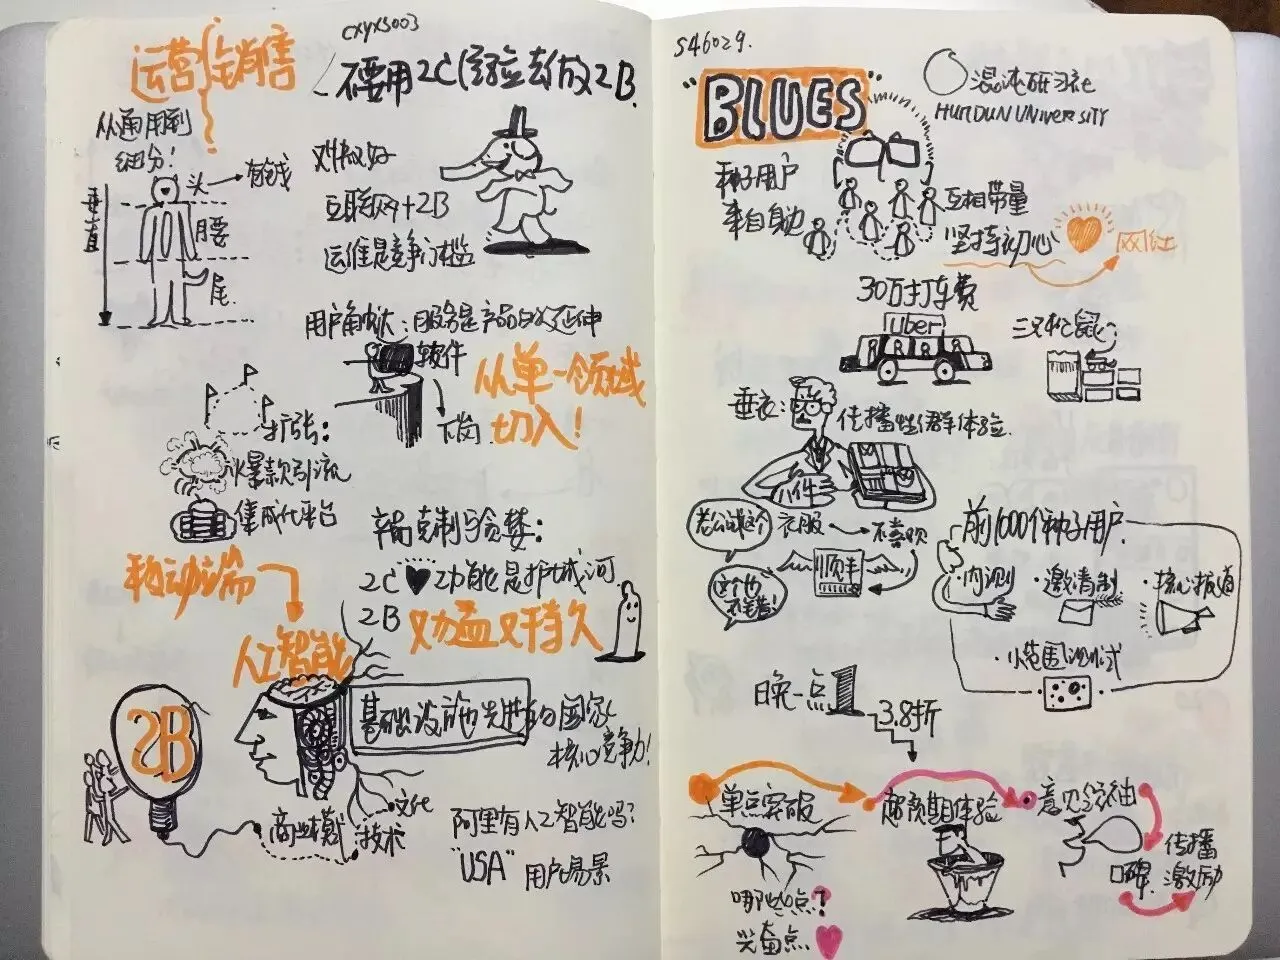 cxyxs003
运营 销售
不要用2C经验去做2B
从通用到
细分!
头→有钱
腰
尾
垂直
对叔好
互联网+2B
运维是竞争门槛
用户角度:服务是产品的延伸
软件
下岗
从单一领域
切入!
扩张:
爆款引流
集成化平台
克制与贪婪:
2C ♥功能是护城河
2B
又持久
移动端
人工智能
2B
基础设施先进的国家
核心竞争力!
商业模式
技术
文化
阿里有人工智能吗?
"USA" 用户场景
S46029.
"BLUES"
混沌研习社
HUNDUN UNIVERSITY
种子用户
来自身边
互相带量
坚持初心
网红
30万打车费
uber
三只松鼠:
垂衣:
传播性群体体验
八件
衣服→不喜欢
老公试这个
这个也
顺丰
前1000个种子用户
·内测
·邀请制
·核心报道
·小范围测试
日晚一点
3.8折
单点突破
超预期体验
意见领袖
传播
口碑
激励
哪些点?
兴奋点